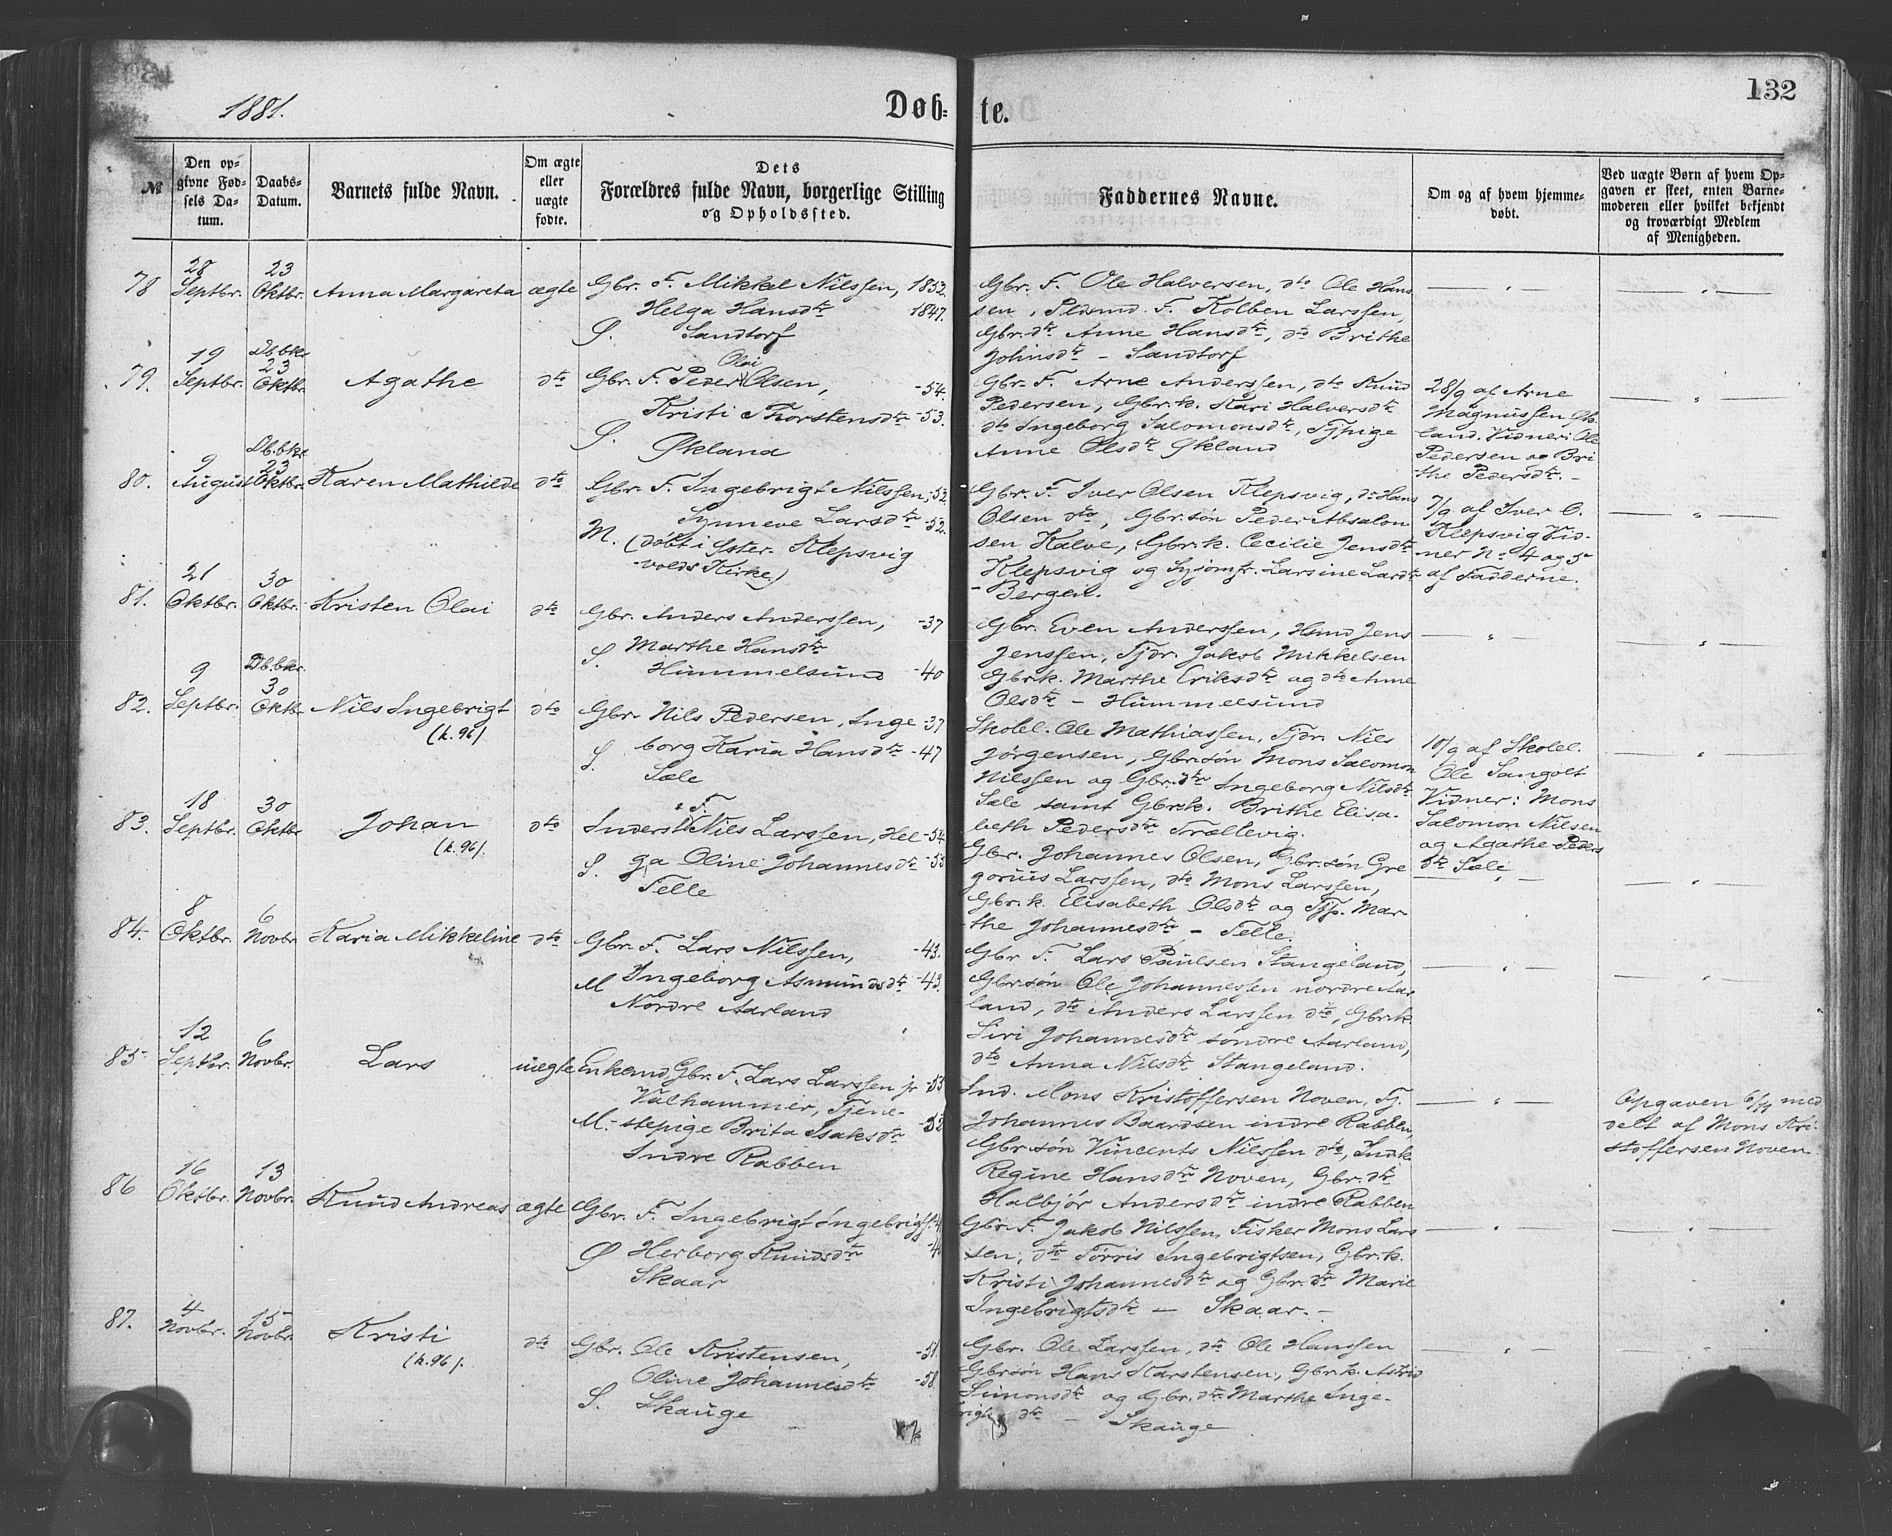 132
1881.
Døb=te.
№
Den op=
givne Fød=
sels Da=
tum.
Daabs=
Datum.
Barnets fulde Navn.
Om ægte
eller
uægte
fødte.
Dets
Forældres fulde Navn, borgerlige Stilling
og Opholdssted.
Faddernes Navne.
Om og af hvem hjemme=
døbt.
Ved uægte Børn af hvem Op=
gaven er skeet, enten Barne=
moderen eller hvilket bekjendt
og troværdigt Medlem
af Menigheden.
78
28
Septbr.
23
Oktbr.
Anna Margareta
ægte
Gbr. F. Mikkel Nilssen, 1852.
Helga Hansdtr 1847.
S. Sandtorf
Gbr. F. Ole Halversen, dto Ole Hans
sen, F. Kolben Larssen,
Gbr.dtr Anne Hansdtr, dto Brithe
Johnsdtr – Sandtorf
79.
19
Septbr.
Db.bkr.
23
Oktbr.
Agathe
dto
Olai
Gbr. F. Peder Olsen, -54.
Kristi Thorstensdtr -53.
S. Økland
Gbr. F. Arne Anderssen, dto Knud
Pedersen, Gbr.k. Kari Halversdtr
dto Ingeborg Salomonsdtr, Tjpige
Anne Olsdtr Økland
28/9 af Arne
Magnussen Øk
land. Vidner: Ole
Pedersen og Bri
the Pedersdtr. –
80.
9
August
Db.bkr.
23
Oktbr.
Karen Mathilde
dto
Gbr. F. Ingebrigt Nilssen, -52
Synneve Larsdtr -52.
M. (døbt i Yster- Klepsvig
volds Kirke)
Gbr. F. Iver Olsen Klepsvig, dto Hans
Olsen dto, Gbr.søn Peder Absalon
sen Kalve, Gbr.k. Cecilie Jensdtr
Klepsvig og Syjomfr. Larsine Larsdtr
– Bergen.
7/9 af Iver O.
Klepsvig Vid-
ner No 4 og 5
af Fadderne.
81.
21
Oktbr.
30
Oktbr.
Kristen Olai
dto
Gbr. Anders Anderssen, -37
S. Marthe Hansdtr
Hummelsund -40
Gbr. Even Anderssen, Hmd Jens
Jenssen, Tjdr. Jakob Mikkelsen
Gbrk. Marthe Eriksdtr og dto Anne
Olsdtr – Hummelsund
82.
9
Septbr.
Db.bkr.
30
Oktbr.
Nils Ingebrigt
(k.96)
dto
Gbr. Nils Pedersen, Inge -37
borg Karia Hansdtr -47
S. Sæle
Skolel. Ole Mathiassen, Tjdr. Nils
Jørgensen, Gbr.søn Mons Salomon
Nilssen og Gbr.dtr Ingeborg Nilsdtr
Sæle samt Gbr.k. Brithe Elisa-
beth Pedersdtr Trællevig.
10/9 af Skolel.
Ole Sangolt
Vidner: Mons
Salomon Nilsen
og Agathe Peders
dtr Sæle
83.
18
Septbr.
30
Oktbr
Johan
(k.96).
dto
F.
Inderst Nils Larssen, Hel -54
ga Oline Johannesdtr -53
S. Telle
Gbr. Johannes Olsen, Gbr.søn Gre
gorius Larssen, dto Mons Larssen,
Gbr.k. Elisabeth Olsdtr og Tjp. Mar-
the Johannesdtr – Telle.
84.
8
Oktbr.
6
Novbr.
Karia Mikkeline
dto
Gbr. F. Lars Nilssen, -43.
M Ingeborg Asmundsdtr -43.
Nordre Aarland
Gbr F. Lars Paulsen Stangeland,
Gbr.søn Ole Johannessen nordre Aar
land, dto Anders Larssen dto, Gbr.k.
Siri Johannesdtr søndre Aarland,
dto Anna Nilsdtr Stangeland.
85.
12
Septbr.
6
Novbr.
Lars
uægte
Enkemd Gbr. F. Lars Larssen jr -53
Valhammer, Tjene-
M. stepige Brita Isaksdtr -52
Indre Rabben
Ind. Mons Kristoffersen Noven, Tj.
Johannes Baardsen indre Rabben,
Gbr.søn Vincents Nilssen dto, Ind.k.
Regine Hansdtr Noven, Gbr.dtr
Halbjør Andersdtr indre Rabben
Opgaven 6/11 med
delt af Mons Kri-
stoffersen Noven
86
16
Oktbr.
13
Novbr.
Knud Andreas
ægte
Gbr. F. Ingebrigt
Ø Herborg Knudsdtr
Skaar
Gbr. F. Jakob Nilssen, Fisker Mons Lars
sen, dto Tørris Ingebrigtsen, Gbr.k.
Kristi Johannesdtr og Gbr.dtr Marie
Ingebrigtsdtr – Skaar. –
87.
4
Novbr.
15
Novbr.
Kristi
(k.96).
dto
Gbr. Ole Kristensen, -51.
Oline Johannesdtr -58.
S. Skauge
Gbr. Ole Larssen, dto Ole Hanssen
Gbr.søn Hans Karstensen, Gbr.k. Astrid
Simonsdtr og Gbr.dtr Marthe Inge-
dto – Skauge